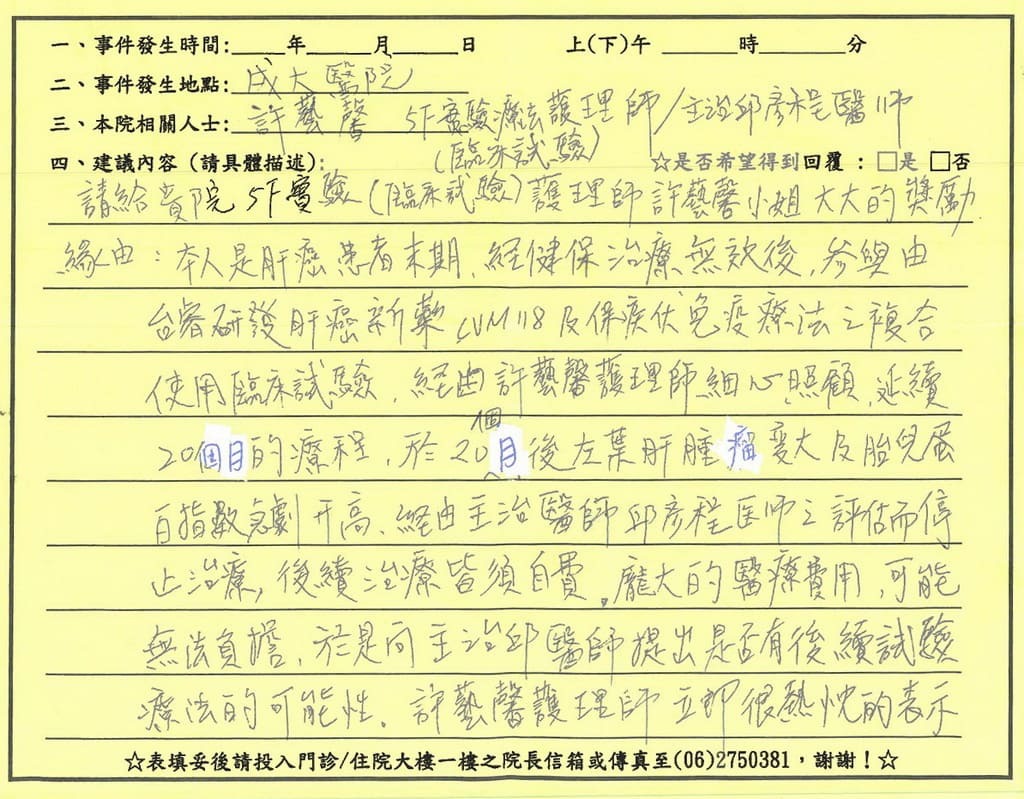 一、事件發生時間：____年____月____日 上(下)午 ____時____分
二、事件發生地點：成大醫院
三、本院相關人士：許藝馨 5F實驗療法護理師/主治邱彥程醫師
(臨床試驗)
四、建議內容（請具體描述）： ☆是否希望得到回覆：□是 □否
請給貴院5F實驗(臨床試驗)護理師許藝馨小姐大大的獎勵
緣由：本人是肝癌患者末期，經健保治療無效後，參與由
台睿研發肝癌新藥CVM118及保疾伏免疫療法之複合
使用臨床試驗，經由許藝馨護理師細心照顧，延續
20個月的療程，於20個月後左葉肝腫瘤變大及胎兒蛋
白指數急劇升高、經由主治醫師邱彥程医师之評估而停
止治療，後續治療皆須自費。龐大的醫療費用，可能
無法負擔，於是向主治邱醫師提出是否有後續試驗
療法的可能性。許藝馨護理師立即很熱忱的表示
☆表填妥後請投入門診/住院大樓一樓之院長信箱或傳真至(06)2750381，謝謝！☆